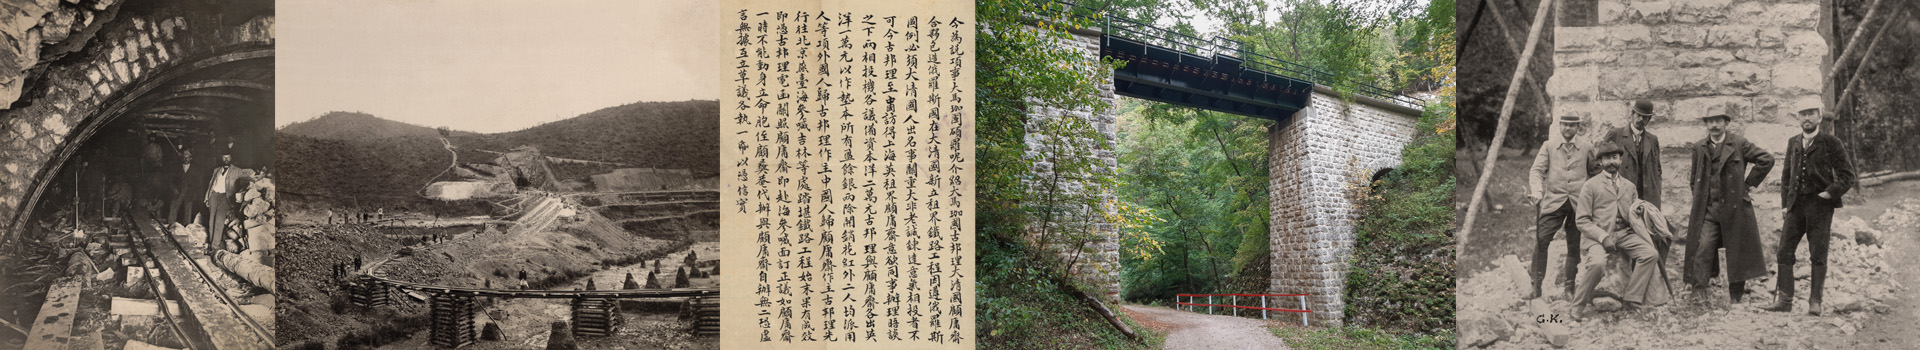 今為託項事大馬加國碩羅呢介紹大馬加國古邦理大清國願庸齋
合夥包造俄羅斯國在大清國新占租界鐵路工程因遵俄羅斯
國例必須大清國人出名事關重大非老誠諫達意氣相投者不
可今古邦理至申訪得上海英租界顧庸齋意欲同事辦理晤談
之下兩相投機各議備資本洋二萬元古邦理與顧庸齋各出英
洋一萬元以作墊本所有盈餘銀兩除開銷花紅外二人均派用
人等項外國人歸古邦理作主中國人歸顧庸齋作主古邦理先
行往北京燕臺海參崴吉林等處踏堪鐵路工程始末果有成效
即憑古邦理電函關照顧庸齋即赴海參崴面訂正議如顧庸齋
一時不能動身立命胞侄顧葵菴代辦與顧庸齋自辦無二恐虛
言無據立立草議各執一帋以憑信實
G.K.